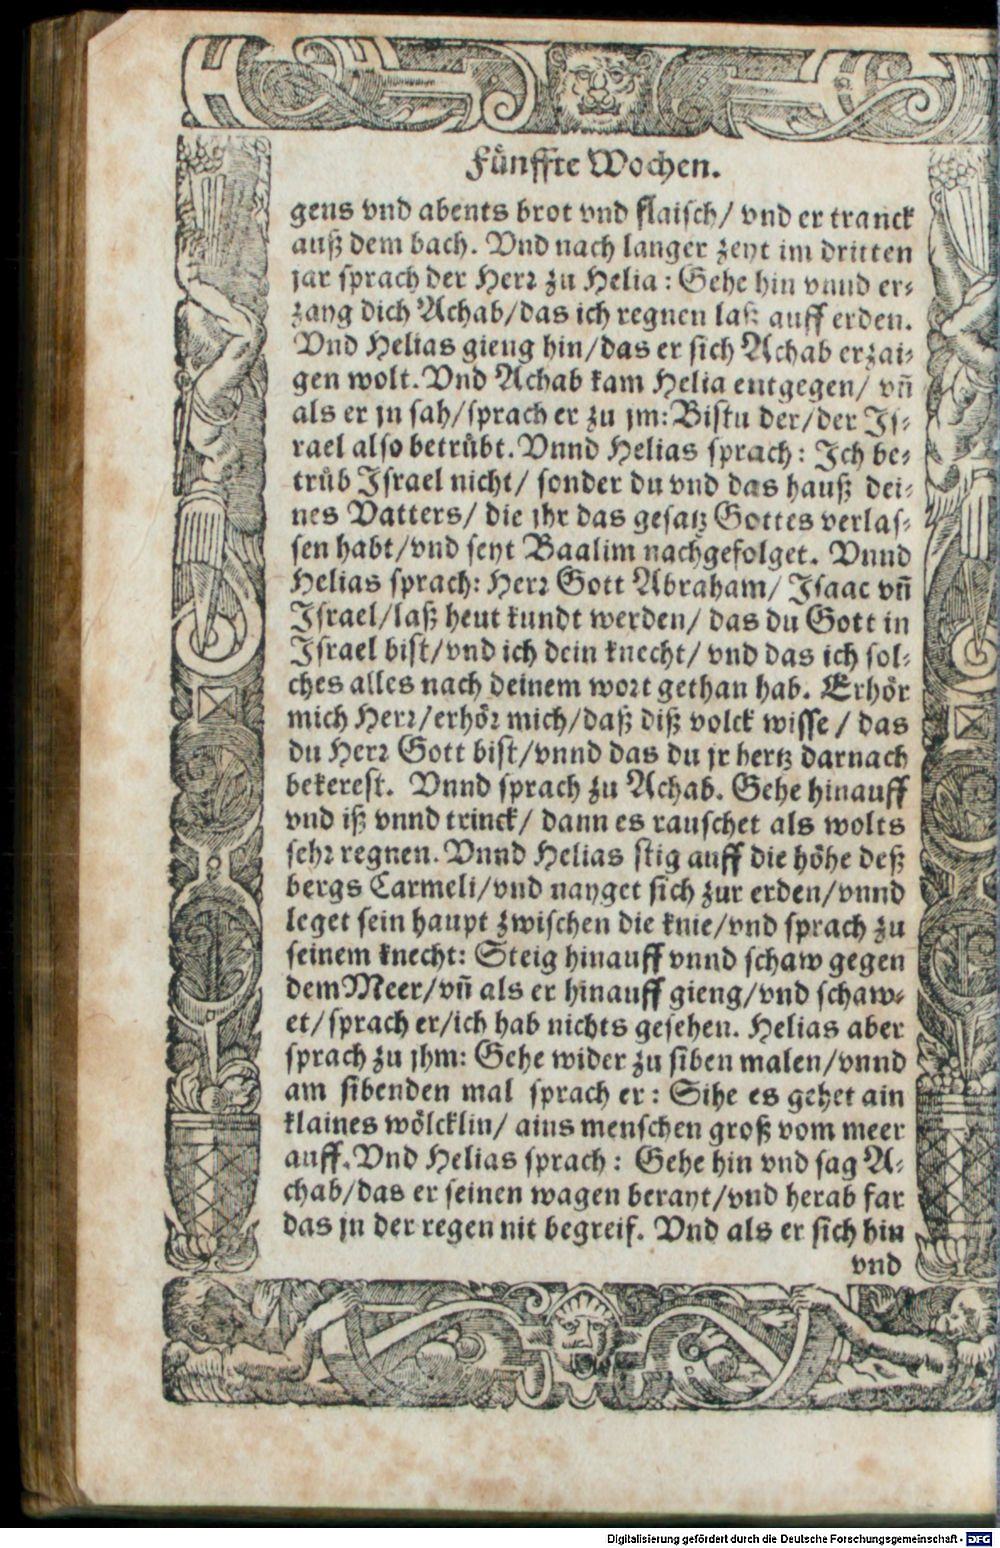 Fünffte Wochen.
gens vnd abents brot vnd flaisch/ vnd er tranck
auß dem bach. Vnd nach langer zeyt im dritten
jar sprach der Herr zu Helia: Gehe hin vnnd er-
zayg dich Achab/das ich regnen laß auff erden.
Vnd Helias gieng hin/das er sich Achab erzai-
gen wolt. Vnd Achab kam Helia entgegen/ vñ
als er jn sah/sprach er zu jm: Bistu der/der Is-
rael also betrůbt. Vnnd Helias sprach: Ich be-
trůb Israel nicht/ sonder du vnd das hauß dei-
nes Vatters/ die jhr das gesatz Gottes verlas-
sen habt/vnd seyt Baalim nachgefolget. Vnnd
Helias sprach: Herr Gott Abraham/ Isaac vñ
Israel/laß heut kundt werden/ das du Gott in
Israel bist/vnd ich dein knecht/ vnd das ich sol-
ches alles nach deinem wort gethan hab. Erhör
mich Herr/erhör mich/daß diß volck wisse / das
du Herr Gott bist/vnnd das du jr hertz darnach
bekerest. Vnnd sprach zu Achab. Gehe hinauff
vnd iß vnnd trinck/ dann es rauschet als wolts
sehr regnen. Vnnd Helias stig auff die höhe deß
bergs Carmeli/vnd nayget sich zur erden/vnnd
leget sein haupt zwischen die knie/vnd sprach zu
seinem knecht: Steig hinauff vnnd schaw gegen
dem Meer/vñ als er hinauff gieng/vnd schaw-
et/ sprach er/ich hab nichts gesehen. Helias aber
sprach zu jhm: Gehe wider zu siben malen/vnnd
am sibenden mal sprach er: Sihe es gehet ain
klaines wölcklin/ ains menschen groß vom meer
auff. Vnd Helias sprach: Gehe hin vnd sag A-
chab/das er seinen wagen berayt/vnd herab far
das jn der regen nit begreif. Vnd als er sich hin
vnd
Digitalisierung gefördert durch die Deutsche Forschungsgemeinschaft - DFG